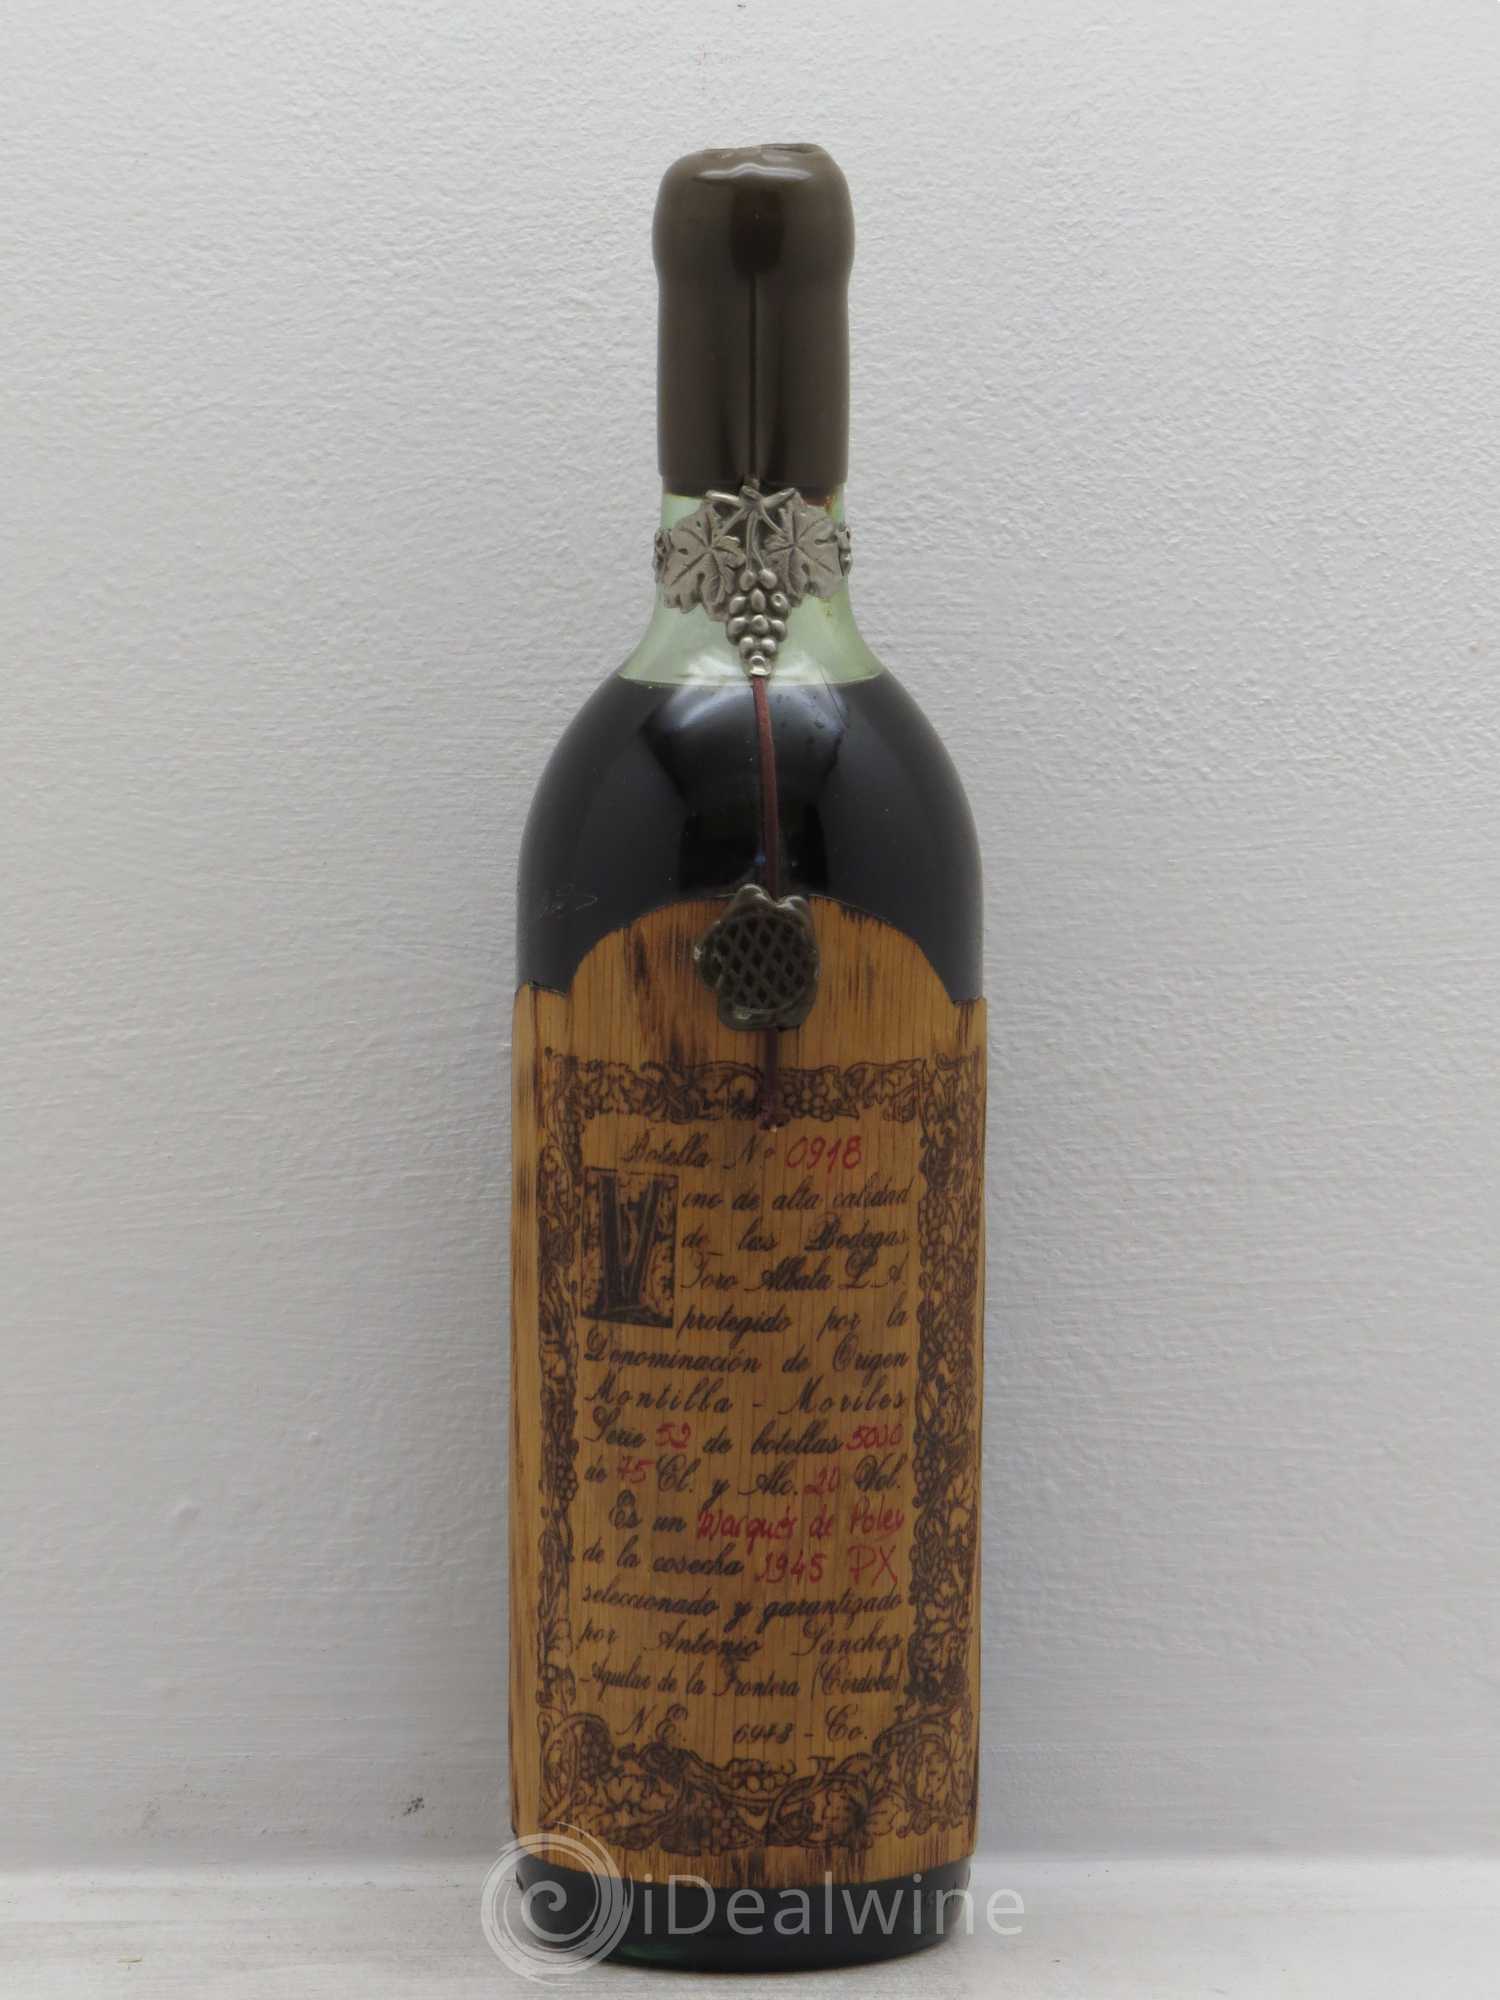 Botella Nº 0918
Vino de alta calidad
de las Bodegas
Toro Albala L.A.
protegido por la
Denominación de Origen
Montilla - Moriles
Serie 52 de botellas 5000
de 75 Cl. y Alc. 20 Vol.
Es un Marqués de Poley
de la cosecha 1945 PX
seleccionado y garantizado
por Antonio Sánchez
-Aguilar de la Frontera (Córdoba)
N.E. 6948 - Co.
iDealwine